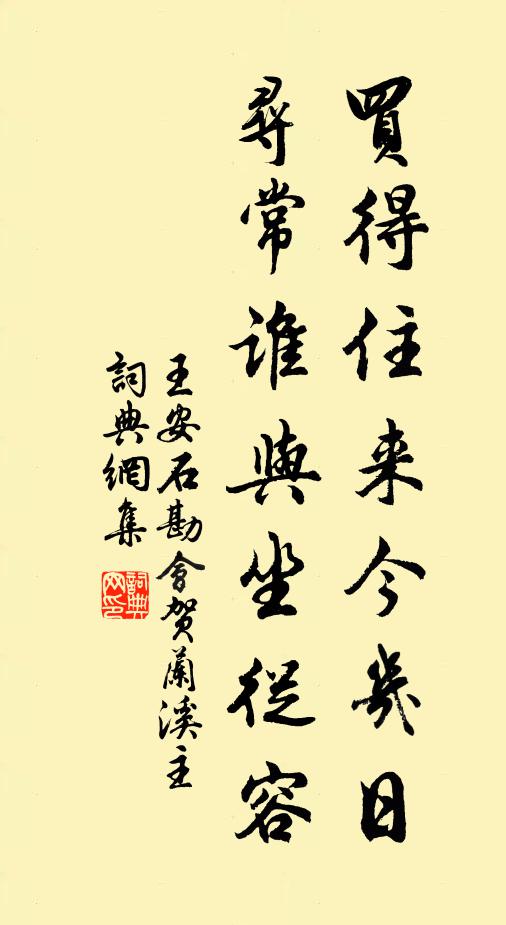 買得住来今幾日
尋常誰與坐從容
王安石勘會賀蘭溪主
詞典網集
詞典網印